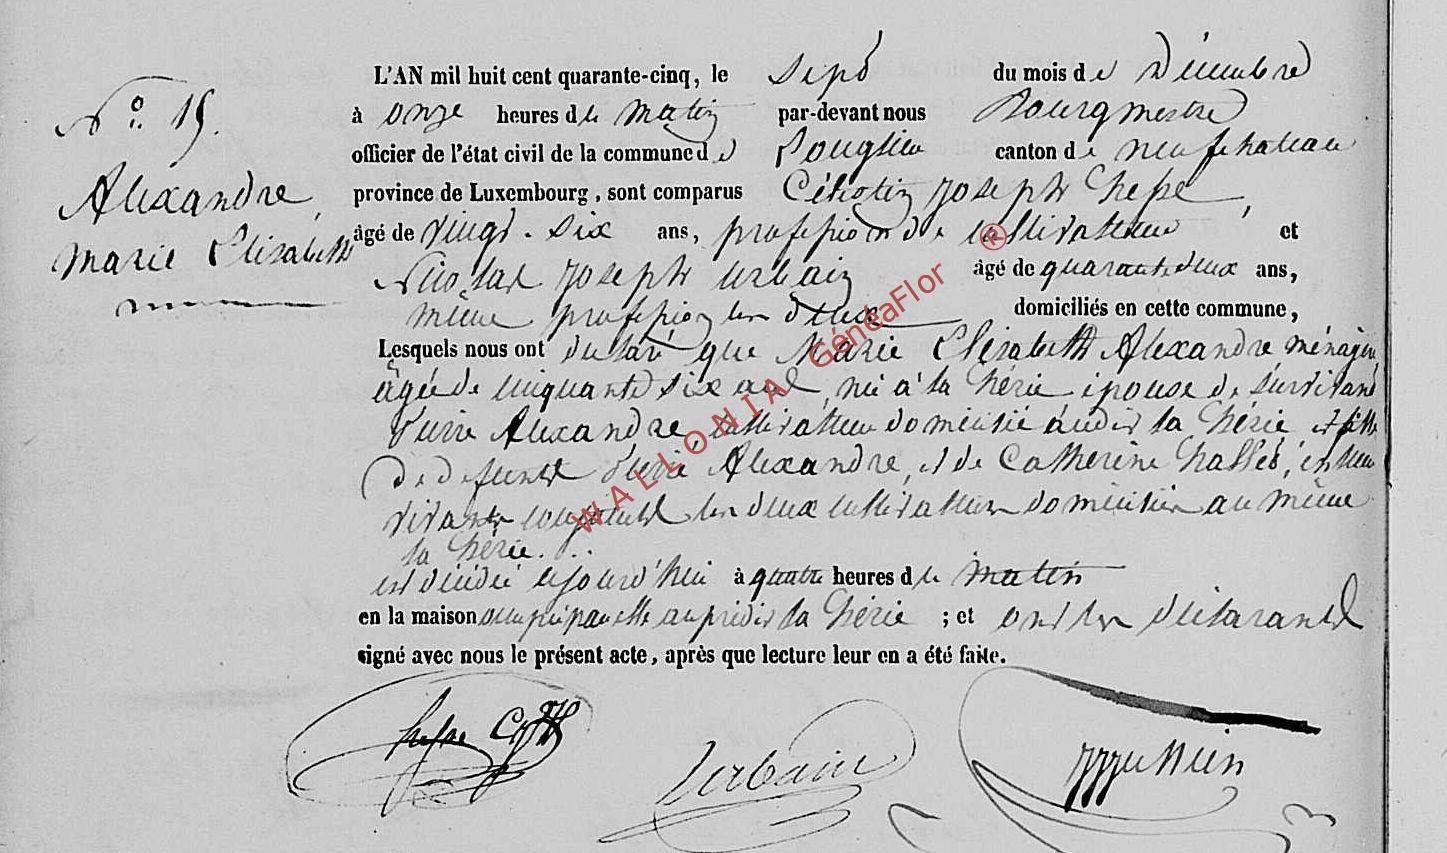 L'AN mil huit cent quarante-cinq, le Sept du mois de Décembre
à onze heures du matin par-devant nous Bourgmestre
N.° 15.
officier de l'état civil de la commune de Longlier canton de neufchateau
Alexandre, province de Luxembourg, sont comparus Célestin Joseph
Marie Elisabeth
âgé de vingt-six ans, profession de cultivateur et
Nicolas Joseph Urbain âgé de quarante deux ans,
même profession les deux domiciliés en cette commune,
Lesquels nous ont déclaré que Marie Elisabeth Alexandre ménagère
âgée de cinquante six ans, née à la hérie épouse de survivant
Pierre Alexandre, cultivateur domicilié audit la hérie et fille
de defunt Pierre Alexandre, et de Catherine
vivants conjoints les deux cultivateurs domiciliés au même
la hérie.
est décédée cejourd'hui à quatre heures du matin
en la maison occupée par elle au prédit la hérie ; et ont les déclarants
signé avec nous le présent acte, après que lecture leur en a été faite.
Urbain
WALLONIA GénéaFlor ®